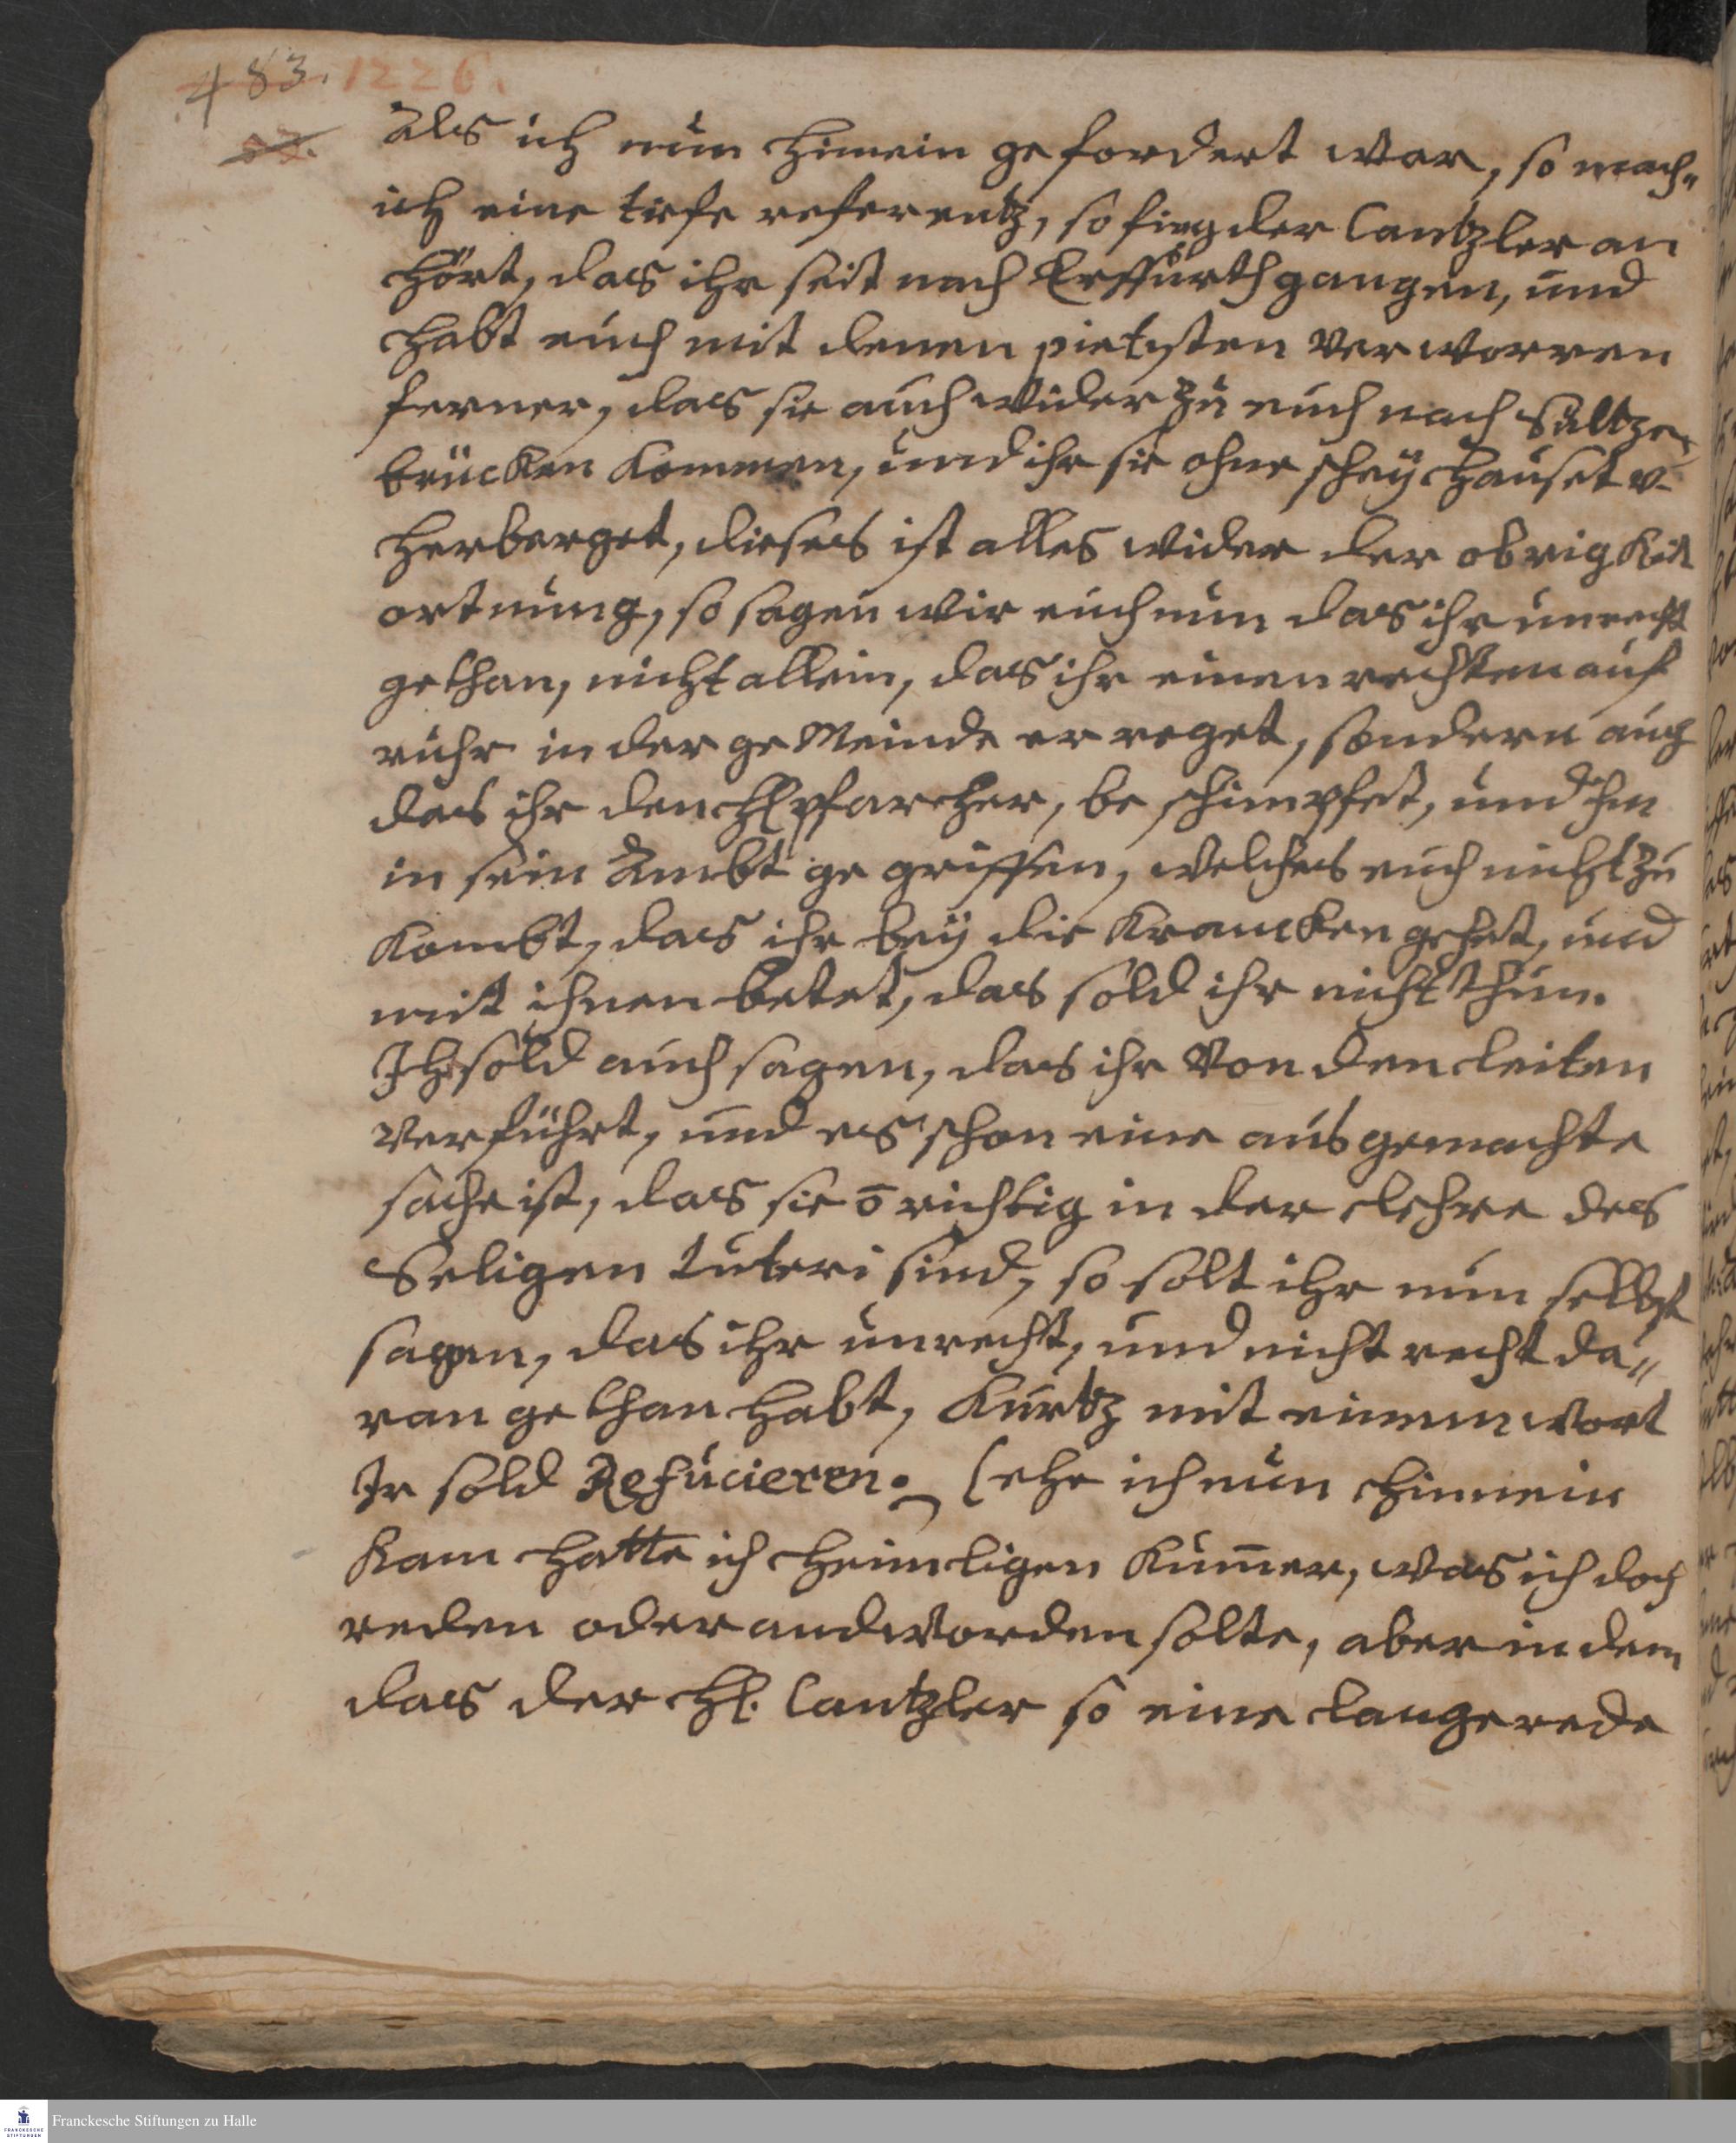 483. 1226.
Als ich nun hinnein gefordert war, so mach„
ich eine tiefe referentz, so fing der Cantzler an
hört, das ihr seit nach Erffurth gangen, und
habt euch mit denen pietisten verworren
ferner, das sie auch wider zu euch nach Sultze„
brücken kommen, und ihr sie ohne scheÿ hauset v.
herberget, dieses ist alles wider der obrigkeit
ortnung, so sagen wir euch nun das ihr unrecht
gethan, nicht allein, das ihr einen rechten auf
ruhr in der gemeinde erreget, sondern auch
das ihr den H pfarcher, beschimpfet, und ihm
in sein Ambt gegriffen, welches euch nicht zu
kombt, das ihr beÿ die Krancken gehet, und
mit ihnen betet, das sold ihr nicht thun.
Ihr sold auch sagen, das ihr von den leiten
verführt, und es schon eine ausgemachte
sache ist, das sie ō richtig in der lehre des
Seligen Luteri sind, so solt ihr nun selbst
sagen, das ihr unrecht, und nicht recht da„
ran gethan habt, Kurtz mit einem wort
Ir sold Refucieren. (ehe ich nun hinnein
kam hatte ich heimligen kum̄er, was ich doch
reden oder andworden solte, aber in dem
das der H. Cantzler so eine lange rede
Franckesche Stiftungen zu Halle
FRANCKESCHE
STIFTUNGEN